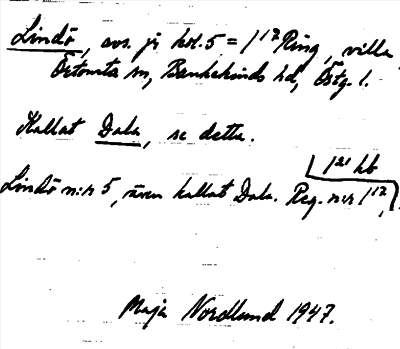 Lindö, avs. fr hel. 5 = 1¹² Ring, villa,
Örtomta sn, Bankekinds hd, Östg. l.
Kallat Dala, se detta.
1²¹ hb
Lindö n:r 5, även kallat Dala. Reg. n:r 1¹²,
Maja Nordlund 1947.